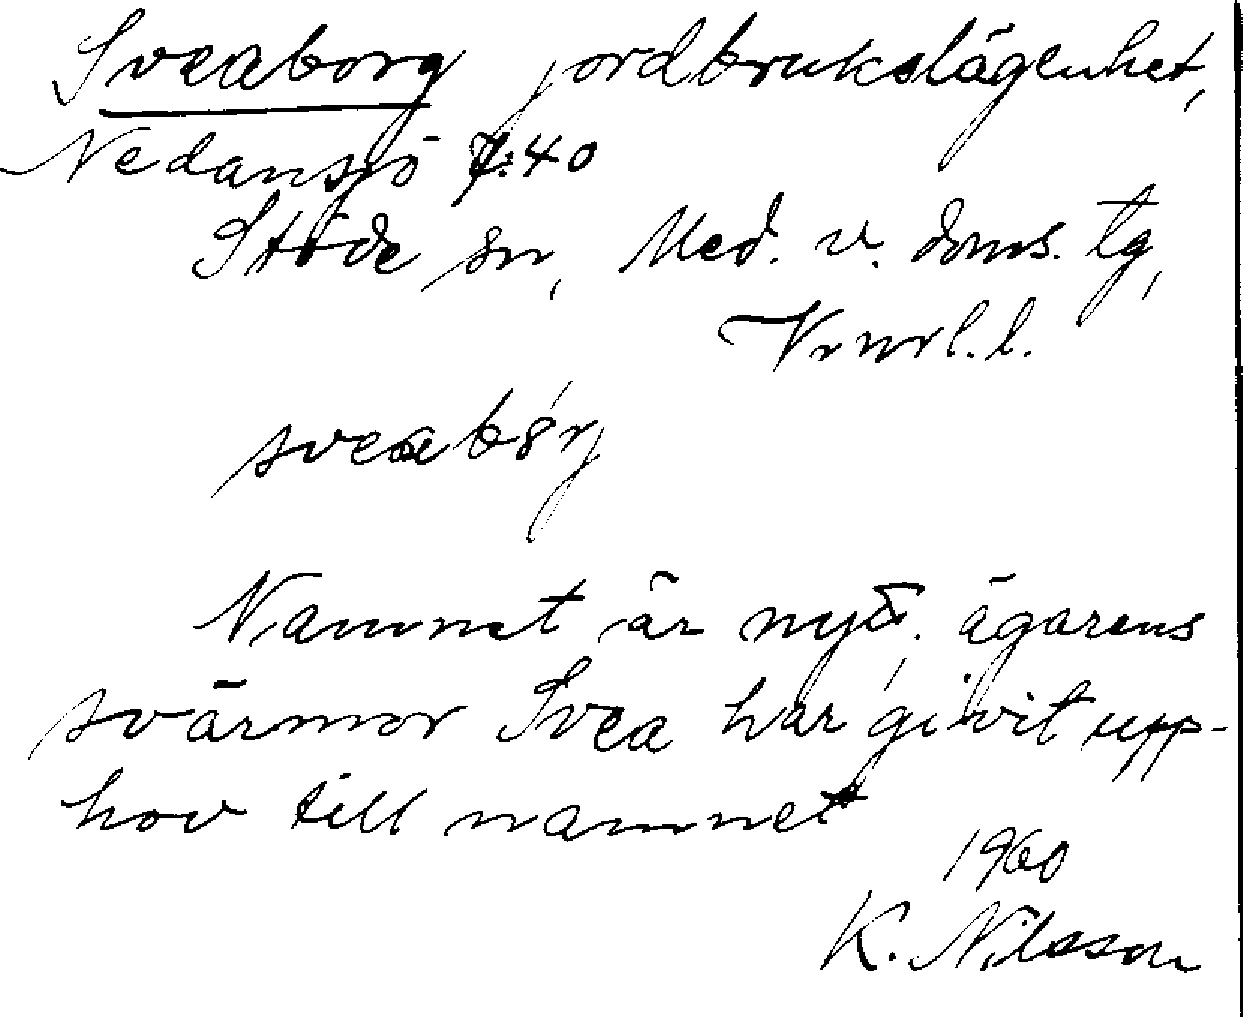 Sveaborg jordbrukslägenhet,
Nedansjö 7:40
Stöde sn, Med. v. doms. tg,
Vrnrl.l.
sveabór
Namnet är nytt, ägarens
svärmor Svea har givit upp-
hov till namnet
1960
K. Nilsson